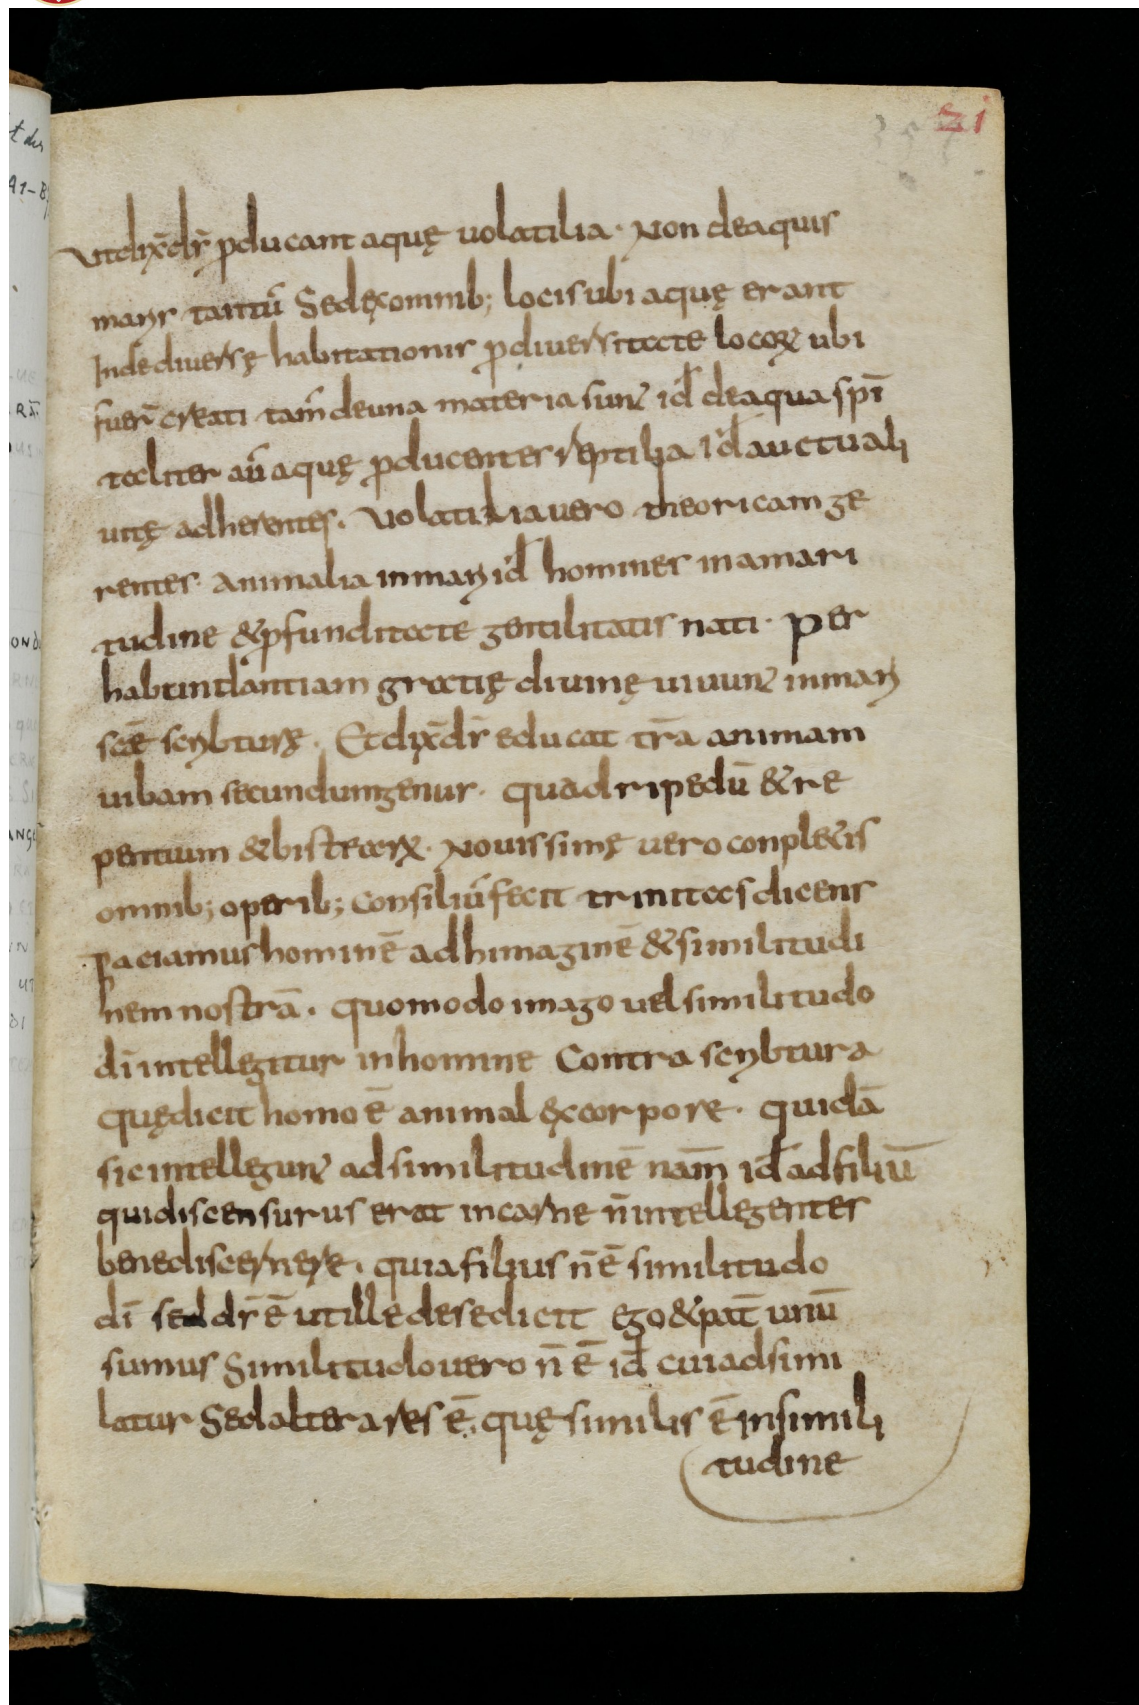 21
Utdix̄ d̄s p̄ducant aquę uolatilia · Non deaquis
maris tantū Sedexomnib; locis ubi aquę erant
Inde diuersę habitationis p̄diuersitate locoꝝ ubi
fuer̄ creati tam̄ deuna materia sunt id̄ deaqua spī
taliter aū aquę p̄ducentes reptilia id̄ auctuali
uitę adherentes . Uolatilia uero theoricam ge
rentes · animalia inmari id̄ homines in amari
tudine &p̄funditate gentilitatis nati · per
habundantiam gratię diuinę uiuunt inmari
scē scribturę . Et dix̄ d̄s educat tr̄a animam
uibam secundumgenus · quadripedū & re
pentium & bistiarꝝ · Nouissimę uero conpl&is
omnib; operib; Consiliū fecit trinitas dicens
Faciamus hominē adhimaginē & similitudi
nem nostrā . quomodo imago uel similitudo
dī intellegitur inhomine Contra scribtura
quędicit homo ē animal excorpore · quidā
sic intellegunt adsimilitudinē nam̄ id̄ adfiliū
quidiscensurus erat incarne n̄ intellegentes
bene discernere . quia filius n̄ ē similitudo
dī sed d̄s ē utille dese dicit ego &pat̄ unū
sumus Similitudo uero n̄ ē id̄ cui adsimi
latur Sed altera res ē . quę similis ē insimili
tudine